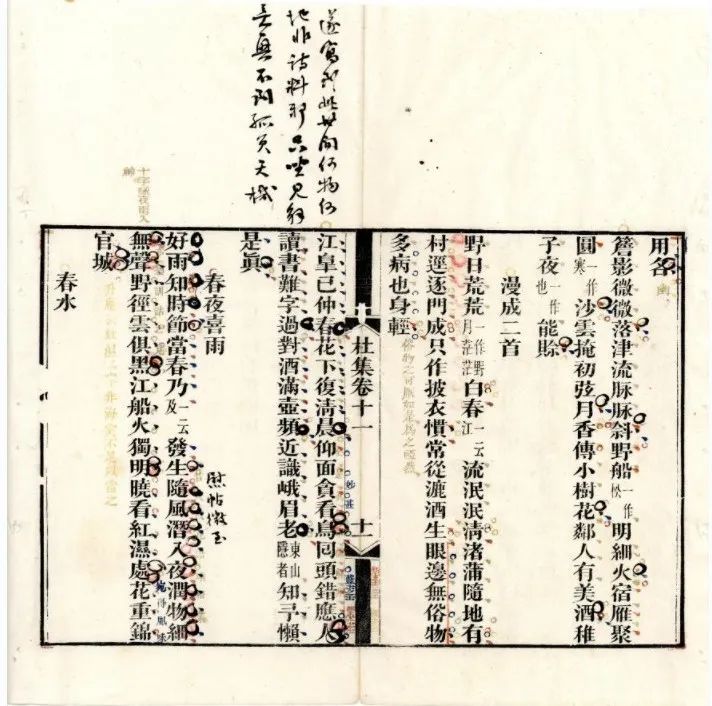 簷影微微落津流脉脉斜野船一作松明細火宿雁聚
圓一作寒沙雲掩初弦月香傳小樹花鄰人有美酒稚
子夜一作也能賖
漫成二首
野日荒荒一作野月茫茫白春一云江流泯泯淸渚蒲隨地有
村逕逐門成只作披衣慣常從漉酒生眼邊無俗物
多病也身輕
杜集卷十一
十一
遂寫到此世間何物何
地非詩料耶只坐見
無不到孤負天機
江皋已仲春花下復淸晨仰面貪看鳥回頭錯應人
讀書難字過對酒滿壺頻近識峨眉老東山隱者知予懶
是眞
春夜喜雨
熨帖微至
好雨知時節當春乃一云及發生隨風潛入夜潤物細
無聲野徑雲俱黑江船火獨明曉看紅濕處花重錦
官城
春水